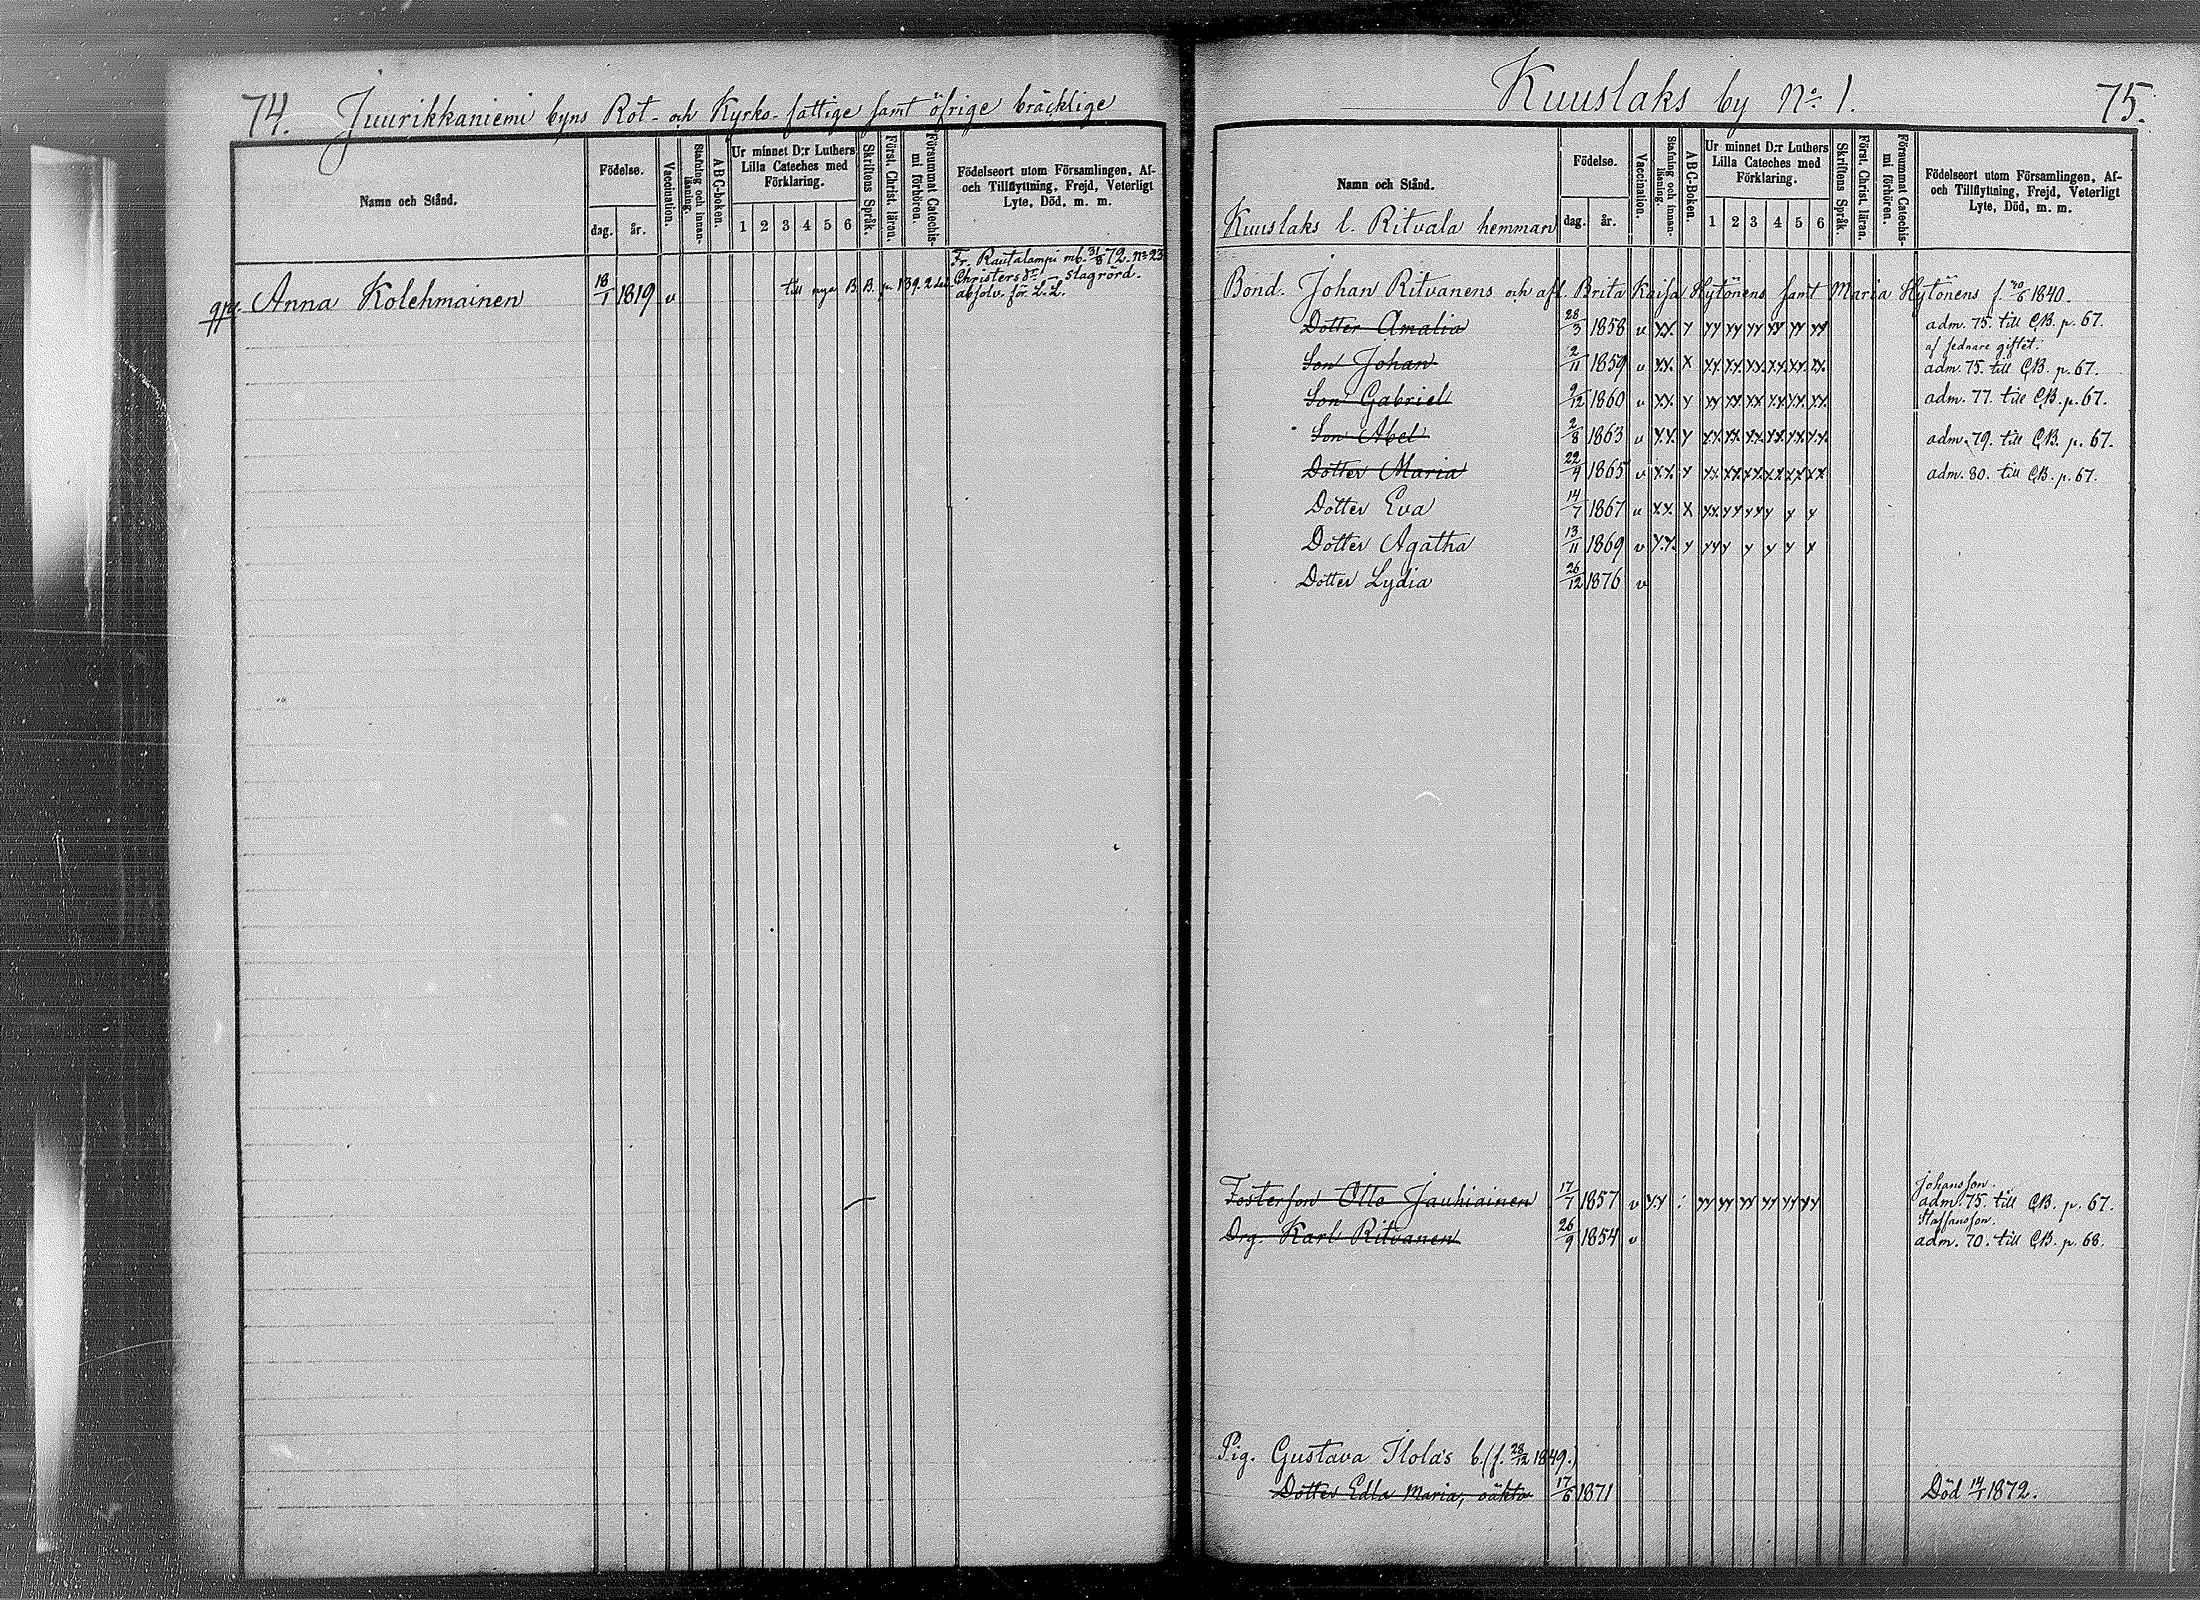 74. Juurikkaniemi byns Rot- och Kyrko-fattige samt öfrige bräcklige
Namn och Stånd.
Födelse.
dag.
år.
Vaccination.
Stafning och innanläsning.
ABC-boken.
Ur minnet D:r Luthers
Lilla Cateches med
Förklaring.
1 2 3 4 5 6
Skriftens Språk.
Först. Christ. läran.
Försummat Catechismi förhören.
Födelseort utom Församlingen, Af-
och Tillflyttning, Frejd, Veterligt
Lyte, Död, m. m.
Fr. Rautalampi mb. 31/8 72. No 23
Anna Kolehmainen 18/1 1819 v till nya B B. p. 139. Christersdr slagrörd.
absolv. för L. L.
Kuuslaks by No. 1. 75.
Namn och Stånd.
Kuuslaks l. Ritvala hemman
Födelse.
dag.
år.
Vaccination.
Stafning och innanläsning.
ABC-Boken.
Ur minnet D:r Luthers
Lilla Cateches med
Förklaring.
1 2 3 4 5 6
Skriftens Språk.
Först. Christ. läran.
Försummat Catechismi förhören.
Födelseort utom Församlingen, Af-
och Tillflyttning, Frejd, Veterligt
Lyte, Död, m. m.
Bond. Johan Ritvanens och afl. Brita Kaisa Hytönens samt Maria Hytönens f. 30/6 1840.
Dotter Amalia 28/3 1858 v xx x xx xx xx xx xx xx adm. 75. till CB. p. 67.
af sednare giftet.
Son Johan 2/11 1859 v xx x xx xx xx xx xx xx adm. 75. till CB. p. 67.
Son Gabriel 9/12 1860 v xx x xx xx xx xx xx xx adm. 77. till CB. p. 67.
Son Abel 2/8 1863 v xx x xx xx xx xx xx xx adm. 79. till CB. p. 67.
Dotter Maria 22/9 1865 v xx x xx xx xx xx xx xx adm. 80. till CB. p. 67.
Dotter Eva 14/7 1867 v xx x xx xx xx x x x
Dotter Agatha 13/11 1869 v xx x xx x x x x x
Dotter Lydia 26/12 1876 v
Johansson.
Fosterson Otto Jauhiainen 17/7 1857 v xx : xx xx xx xx xx xx adm. 75. till CB. p. 67.
Staffansson.
Drg. Karl Ritvanen 26/9 1854 v adm. 70. till CB. p. 68.
Pig. Gustava Ilola's b. (f. 28/12 1849.)
Dotter Edla Maria, oäkta 17/6 1871 Död 14/1 1872.